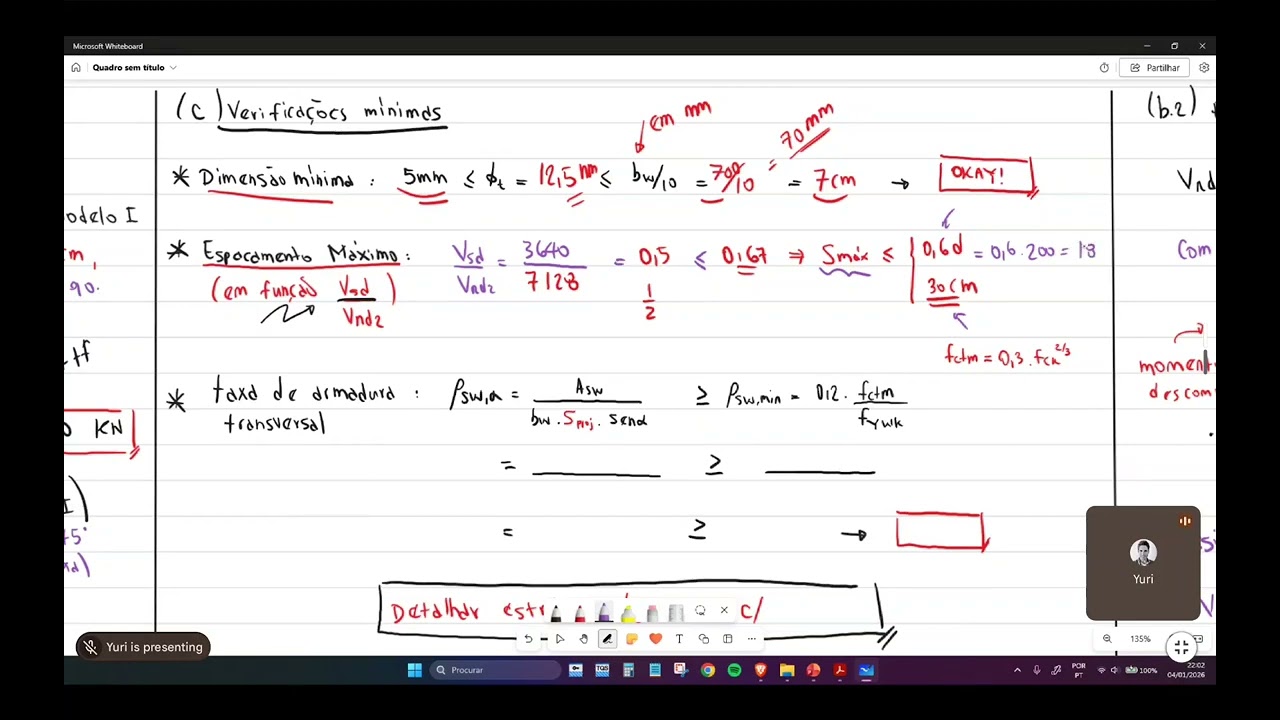 Microsoft Whiteboard
Quadro sem título
Partilhar
(c) Verificações mínimas
em mm
70mm
(b.2)
* Dimensão mínima : 5mm ≤ ϕt = 12,5mm ≤ bw/10 = 700/10 = 7cm → OKAY!
Vrd
odelo I
* Espaçamento Máximo: Vsd/Vrd2 = 3640/7128 = 0,5 ≤ 0,167 ⇒ Smáx ≤ { 0,6d = 0,6.200 = 1,8
Com
m,
(em função Vsd/Vrd2)
1/2
30cm
90.
fctm = 0,3.fck^2/3
moment
descom
* taxa de armadura transversal : ρsw,α = Asw / bw.Sproj.senα ≥ ρsw,min = 0,2 . fctm/fywk
KN
= ≥
I)
= ≥ →
Yuri
Detalhar estr c/
135%
Yuri is presenting
Procurar
POR
PT
100%
22:02
04/01/2026